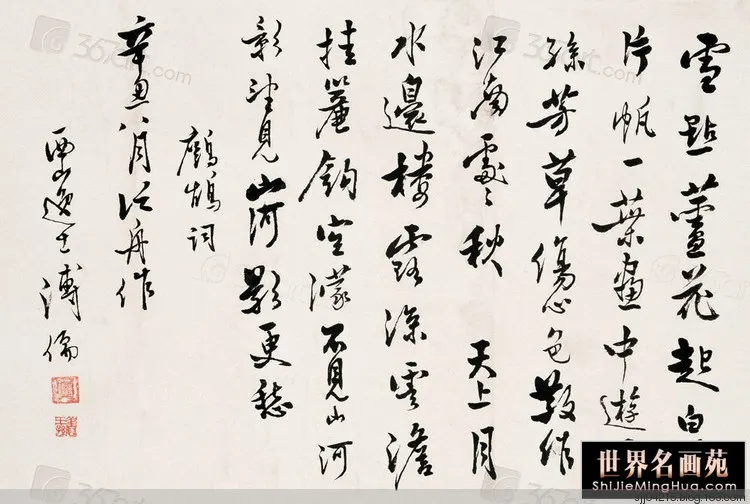 雪點蘆花起白
片帆一葉畫中遊
孫芳草傷心色散作
江南處〻秋 天上月
水邊樓露深雲澹
挂簾鉤空濛不見山河
影望見山河影更愁
鷓鴣詞
辛丑八月江舟作
西山逸士溥儒
世界名画苑
SHiJieMingHua.Com